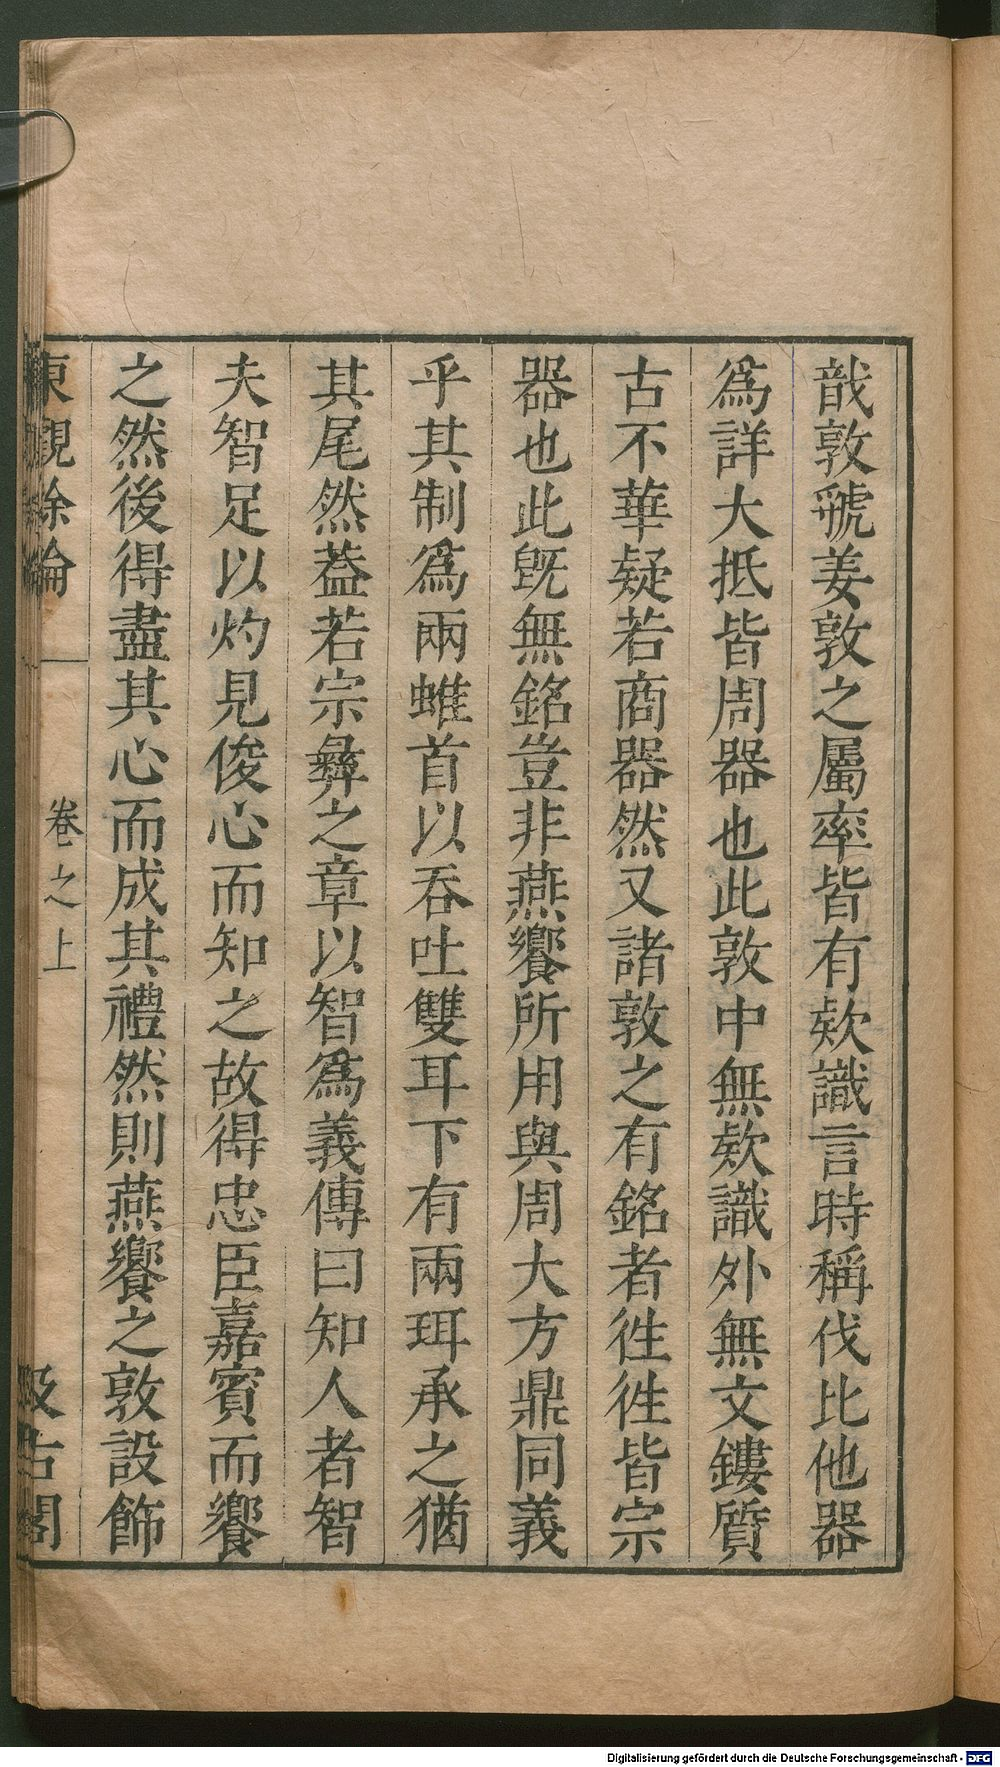 敔敦虢姜敦之屬率皆有欵識言時稱伐比他器
爲詳大抵皆周器也此敦中無欵識外無文鏤質
古不華疑若商器然又諸敦之有銘者徃徃皆宗
器也此旣無銘豈非燕饗所用與周大方鼎同義
乎其制爲兩蜼首以吞吐雙耳下有兩珥承之猶
其尾然葢若宗彝之章以智爲義傳曰知人者智
夫智足以灼見俊心而知之故得忠臣嘉賓而饗
之然後得盡其心而成其禮然則燕饗之敦設飾
東觀餘論 卷之上 汲古閣
Digitalisierung gefördert durch die Deutsche Forschungsgemeinschaft - DFG